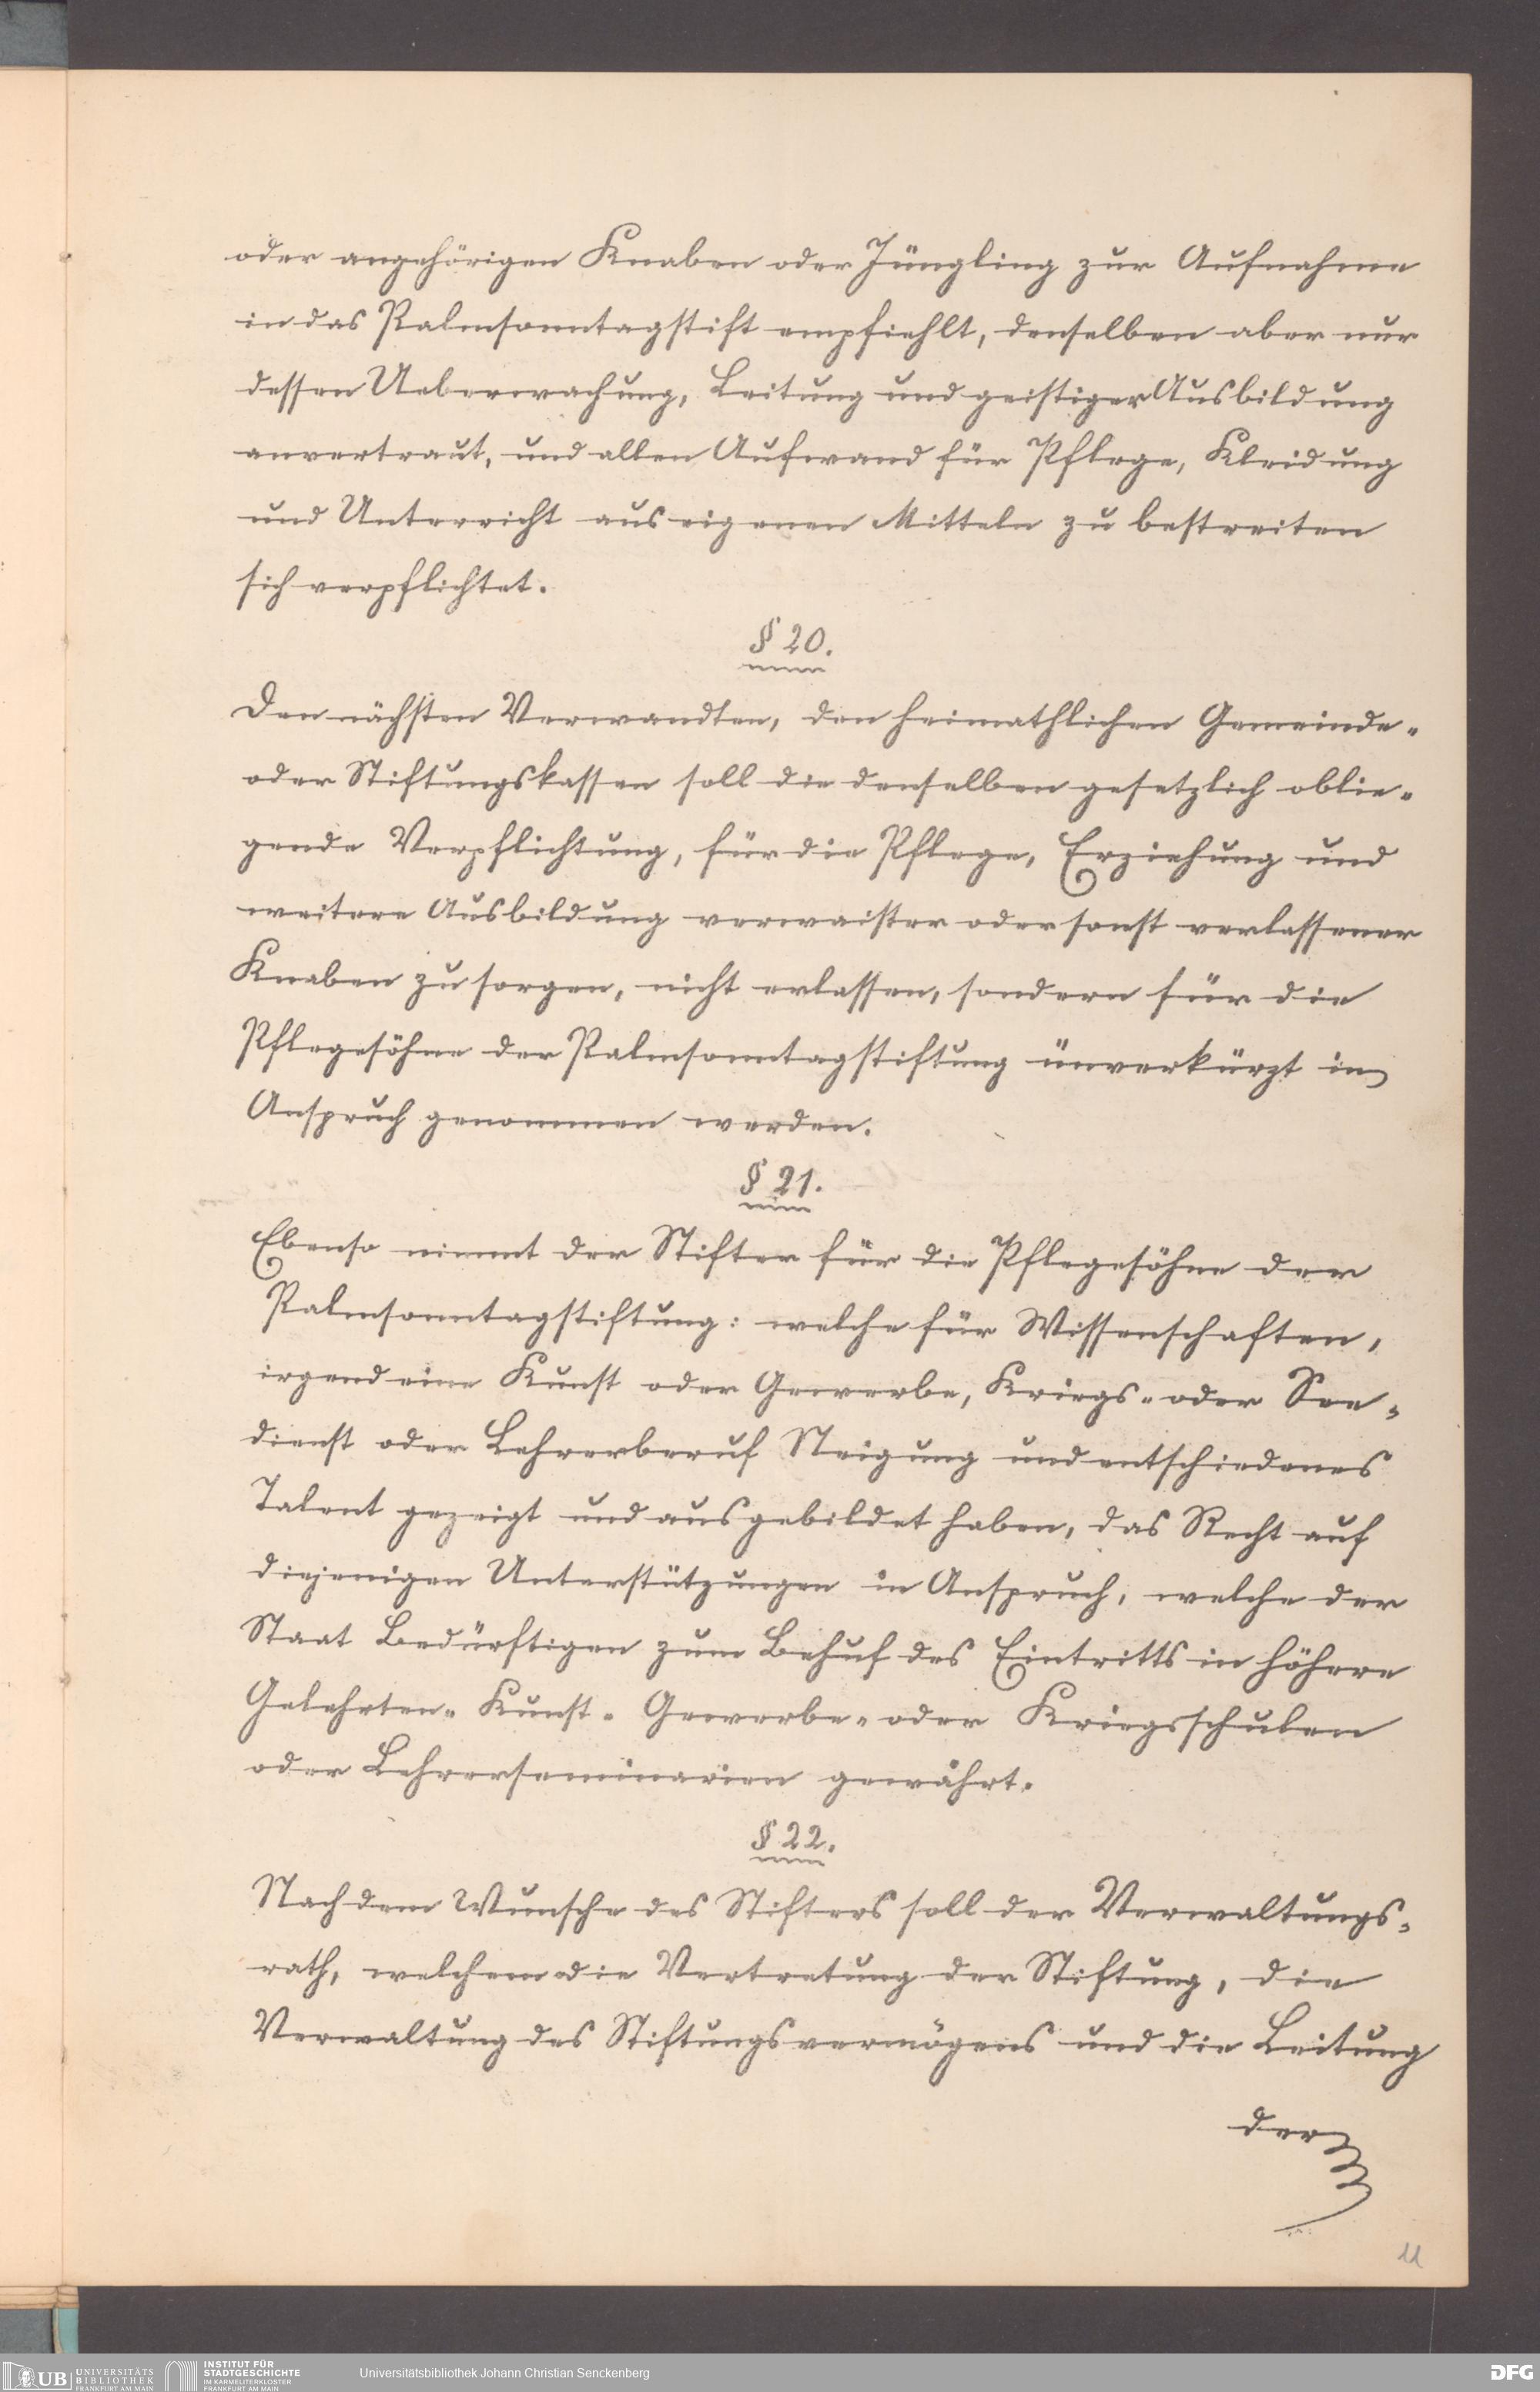 oder angehörigen Knaben oder Jüngling zur Aufnahme
in das Palmsonntagstift empfiehlt, denselben aber nur
dessen Ueberwachung, Leitung und geistiger Ausbildung
anvertraut, und allen Aufwand für Pflege, Kleidung
und Unterricht aus eigenen Mitteln zu bestreiten
sich verpflichtet.
§ 20.
Den nächsten Verwandten, den heimathlichen Gemeinde-
oder Stiftungskassen soll die denselben gesetzlich oblie-
gende Verpflichtung, für die Pflege, Erziehung und
weitere Ausbildung verwaister oder sonst verlassener
Knaben zu sorgen, nicht erlassen, sondern für die
Pflegesöhne der Palmsonntagstiftung unverkürzt in
Anspruch genommen werden.
§ 21.
Ebenso nimmt der Stifter für die Pflegesöhne der
Palmsonntagstiftung: welche für Wissenschaften,
irgend eine Kunst oder Gewerbe, Kriegs- oder See-
dienst oder Lehrerberuf Neigung und entschiedenes
Talent gezeigt und ausgebildet haben, das Recht auf
diejenigen Unterstützungen in Anspruch, welche der
Staat Bedürftigen zum Behuf des Eintritts in höhere
Gelehrten- Kunst- Gewerbe- oder Kriegsschulen
oder Lehrerseminarien gewährt.
§ 22.
Nach dem Wunsche des Stifters soll der Verwaltungs-
rath, welchem die Vertretung der Stiftung, die
Verwaltung des Stiftungsvermögens und die Leitung
der
11
UB UNIVERSITÄTS BIBLIOTHEK FRANKFURT AM MAIN
INSTITUT FÜR STADTGESCHICHTE IM KARMELITERKLOSTER FRANKFURT AM MAIN
Universitätsbibliothek Johann Christian Senckenberg
DFG